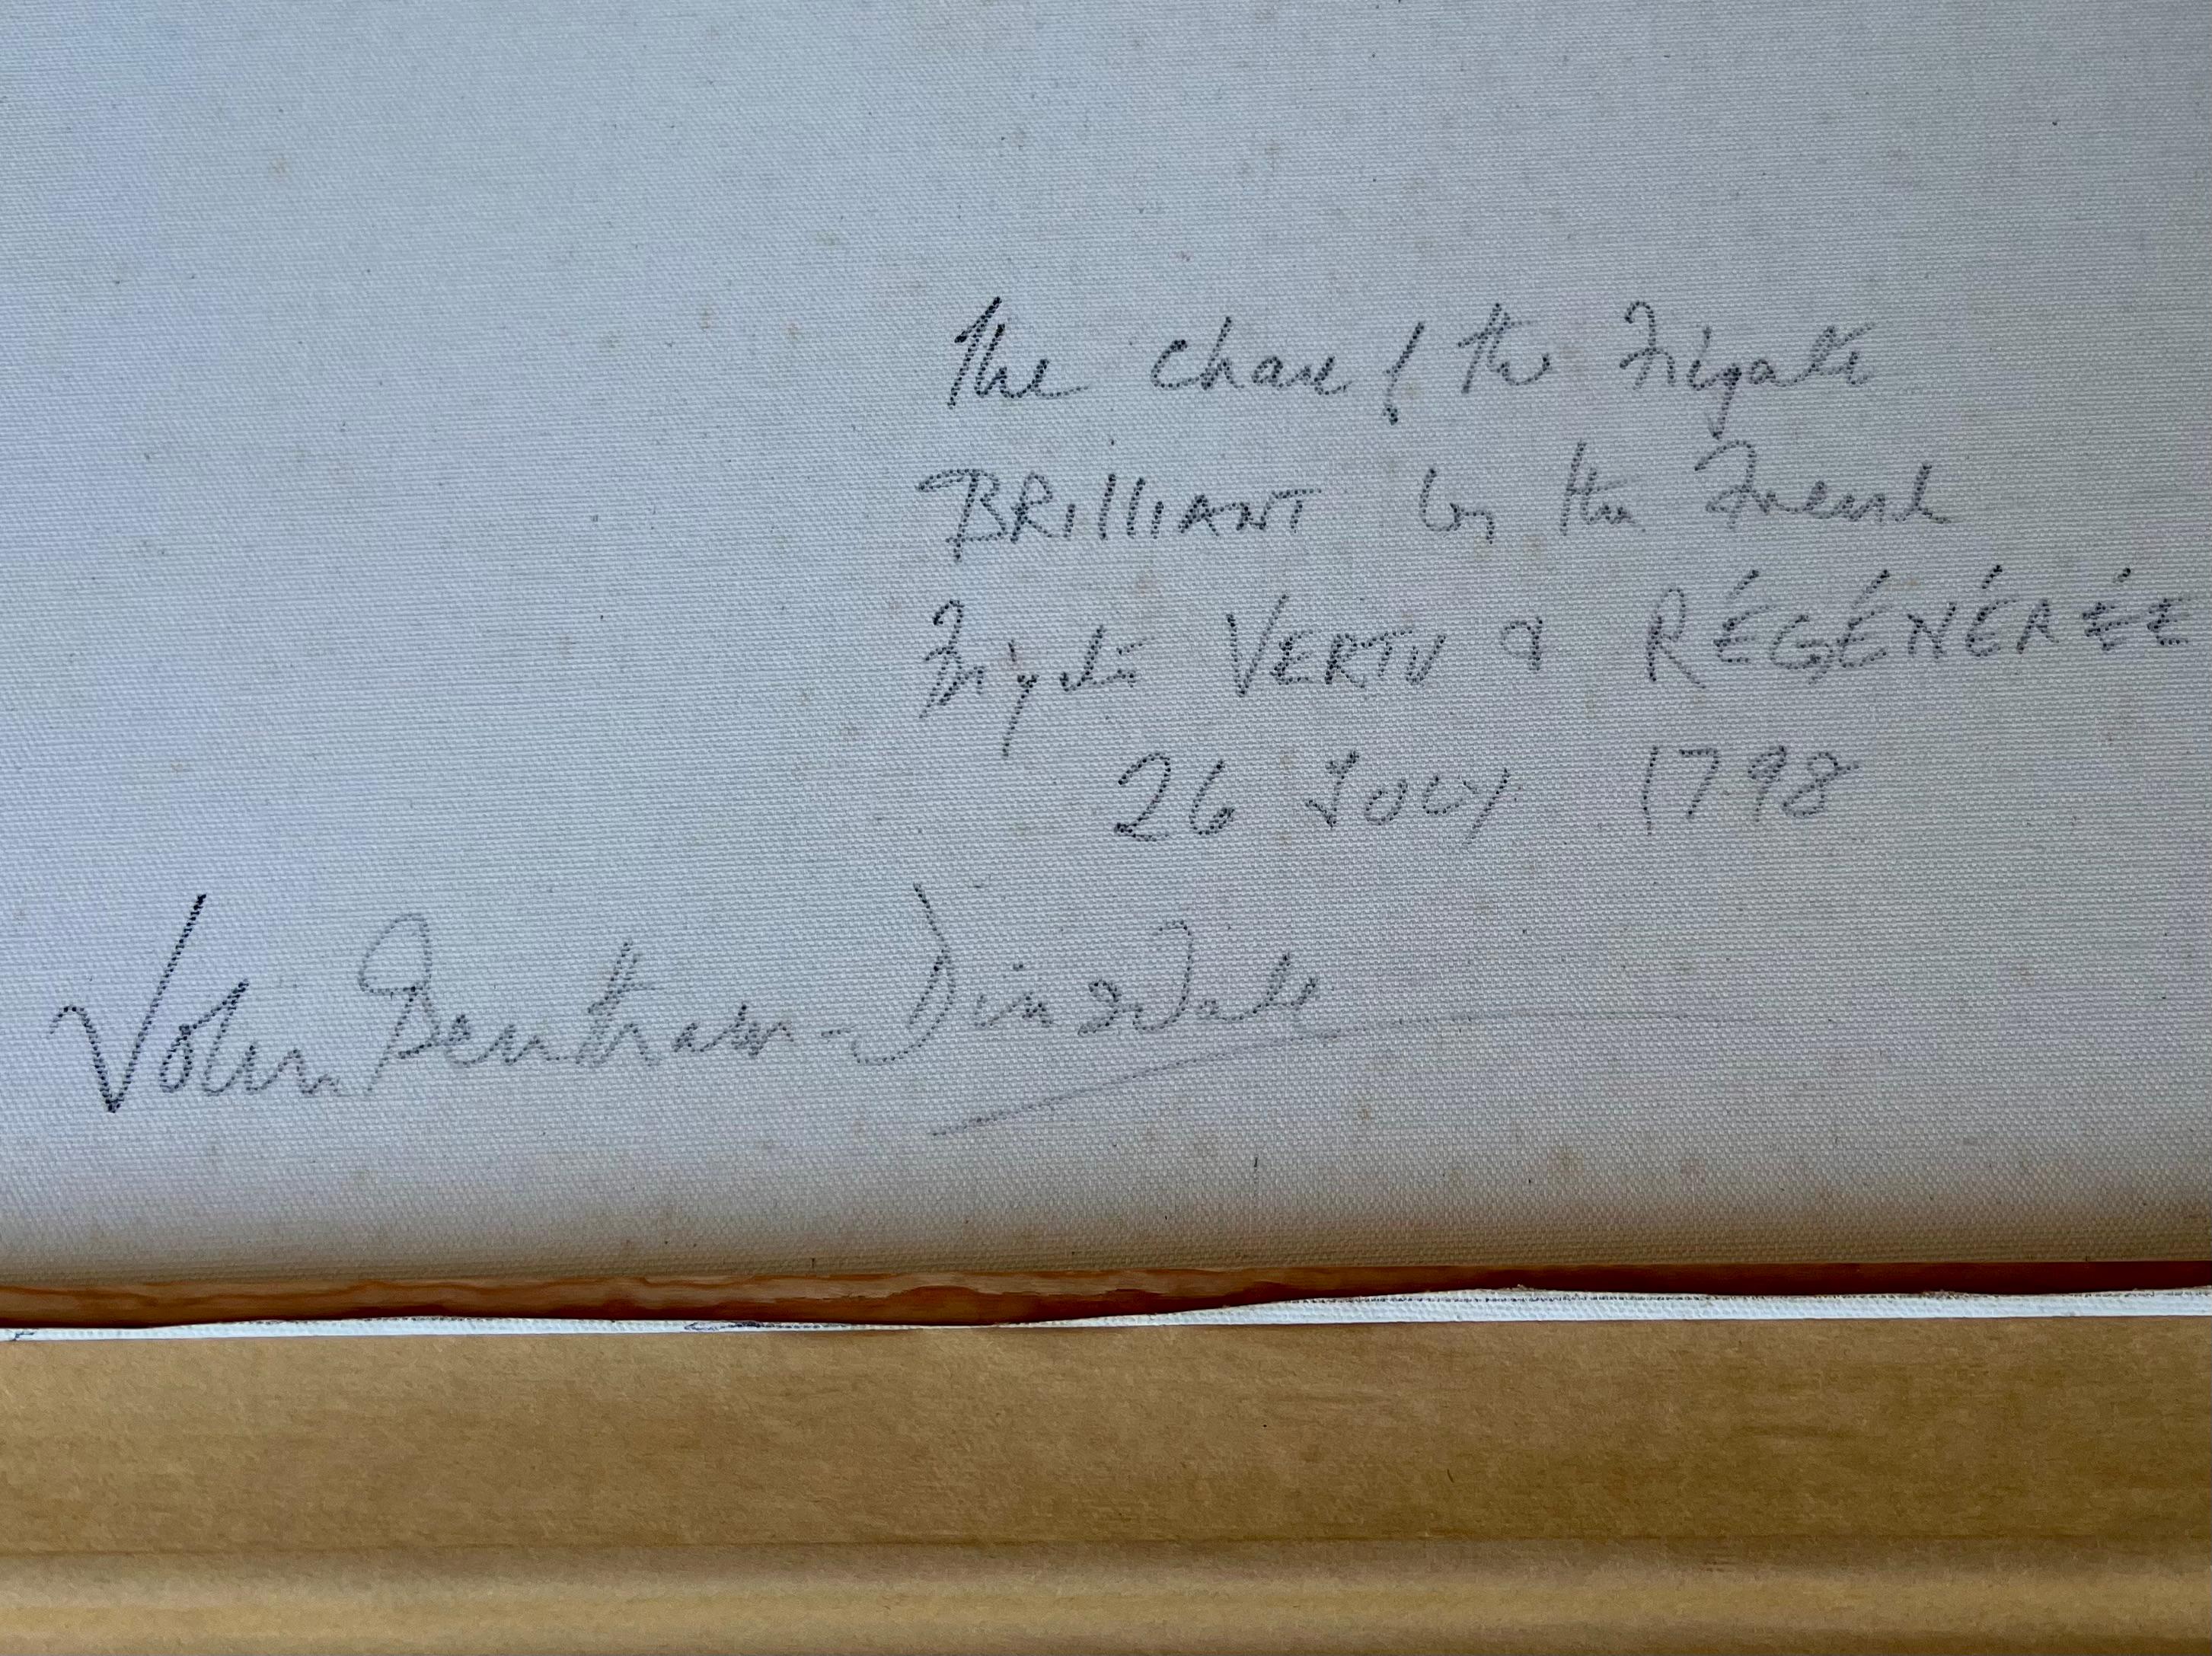 The Chase of the Frigate
BRILLIANT by the French
Frigates VERTU & RÉGÉNÉRÉE
26 JULY 1798
John Bentham-Dinsdale